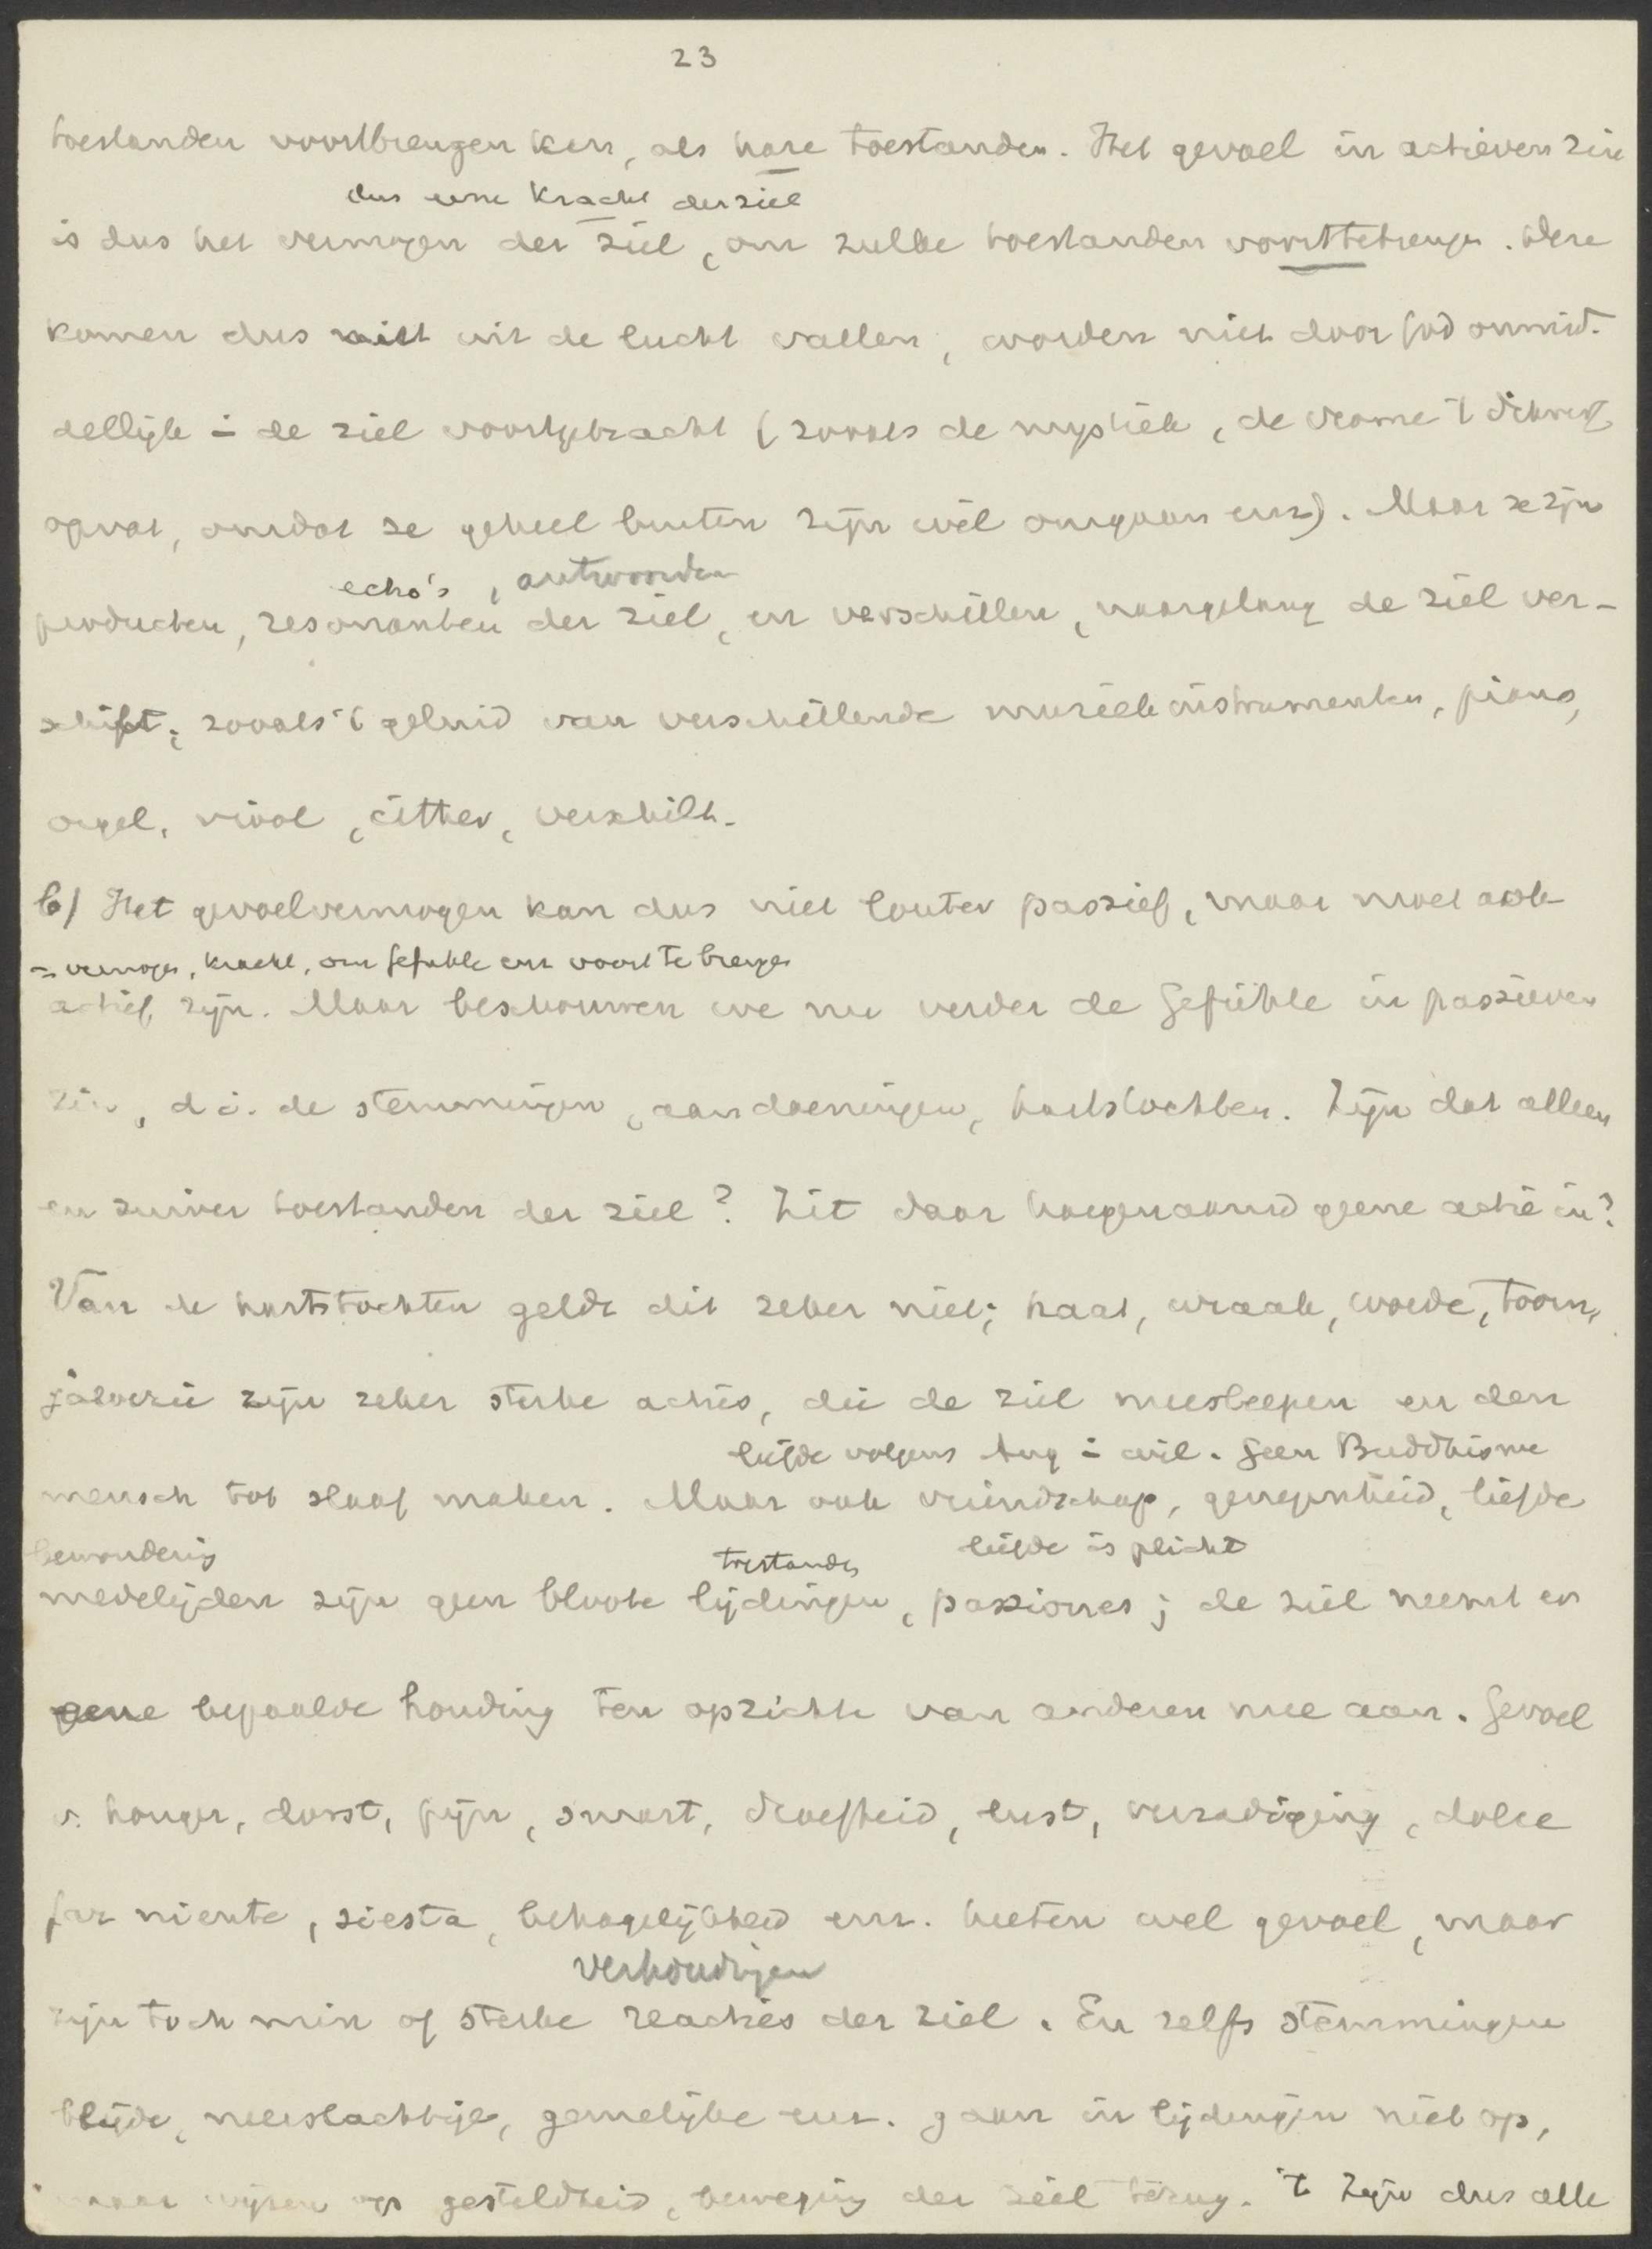 23
toestanden voortbrengen kan, als hare toestanden. Het gevoel in actieven zin
dus eene kracht der ziel
is dus het vermogen der ziel, om zulke toestanden voort te brengen. Deze
komen dus niet uit de lucht vallen, worden niet door God onmid-
dellijk in de ziel voortgebracht (zooals de mystiek, de vrome 't dikwerf
opvat, omdat ze geheel buiten zijn wil omgaan enz). Maar ze zijn
echo's, antwoorden
producten, resonanten der ziel, en verschillen, naargelang de ziel ver-
schilt; zooals 't geluid van verschillende muziekinstrumenten, piano,
orgel, viool, citther, verschilt.
b) Het gevoelvermogen kan dus niet louter passief, maar moet ook
= vermogen, kracht, om Gefühle enz voort te brengen
actief zijn. Maar beschouwen we nu verder de Gefühle in passieven
zin, d.i. de stemmingen, aandoeningen, hartstochten. Zijn dat alleen
en zuiver toestanden der ziel? Zit daar hoegenaamd geene actie in?
Van de hartstochten geldt dit zeker niet; haat, wraak, woede, toorn,
jaloezie zijn zeker sterke acties, die de ziel meesleepen en den
liefde volgens Aug = wil. Geen Buddhisme
mensch tot slaaf maken. Maar ook vriendschap, genegenheid, liefde
bewondering toestanden liefde is plicht
medelijden zijn geen bloote lijdingen, passiones; de ziel neemt er
eene bepaalde houding ten opzichte van anderen mee aan. Gevoel
v. honger, dorst, pijn, smart, droefheid, lust, verzadiging, dolce
far niente, siesta, behagelijkheid enz. heeten wel gevoel, maar
verhoudingen
zijn toch min of sterke reacties der ziel. En zelfs stemmingen
blijde, neerslachtige, gemelijke enz. gaan in lijdingen niet op,
maar wijzen op gesteldheid, beweging der ziel terug. 't Zijn dus alle